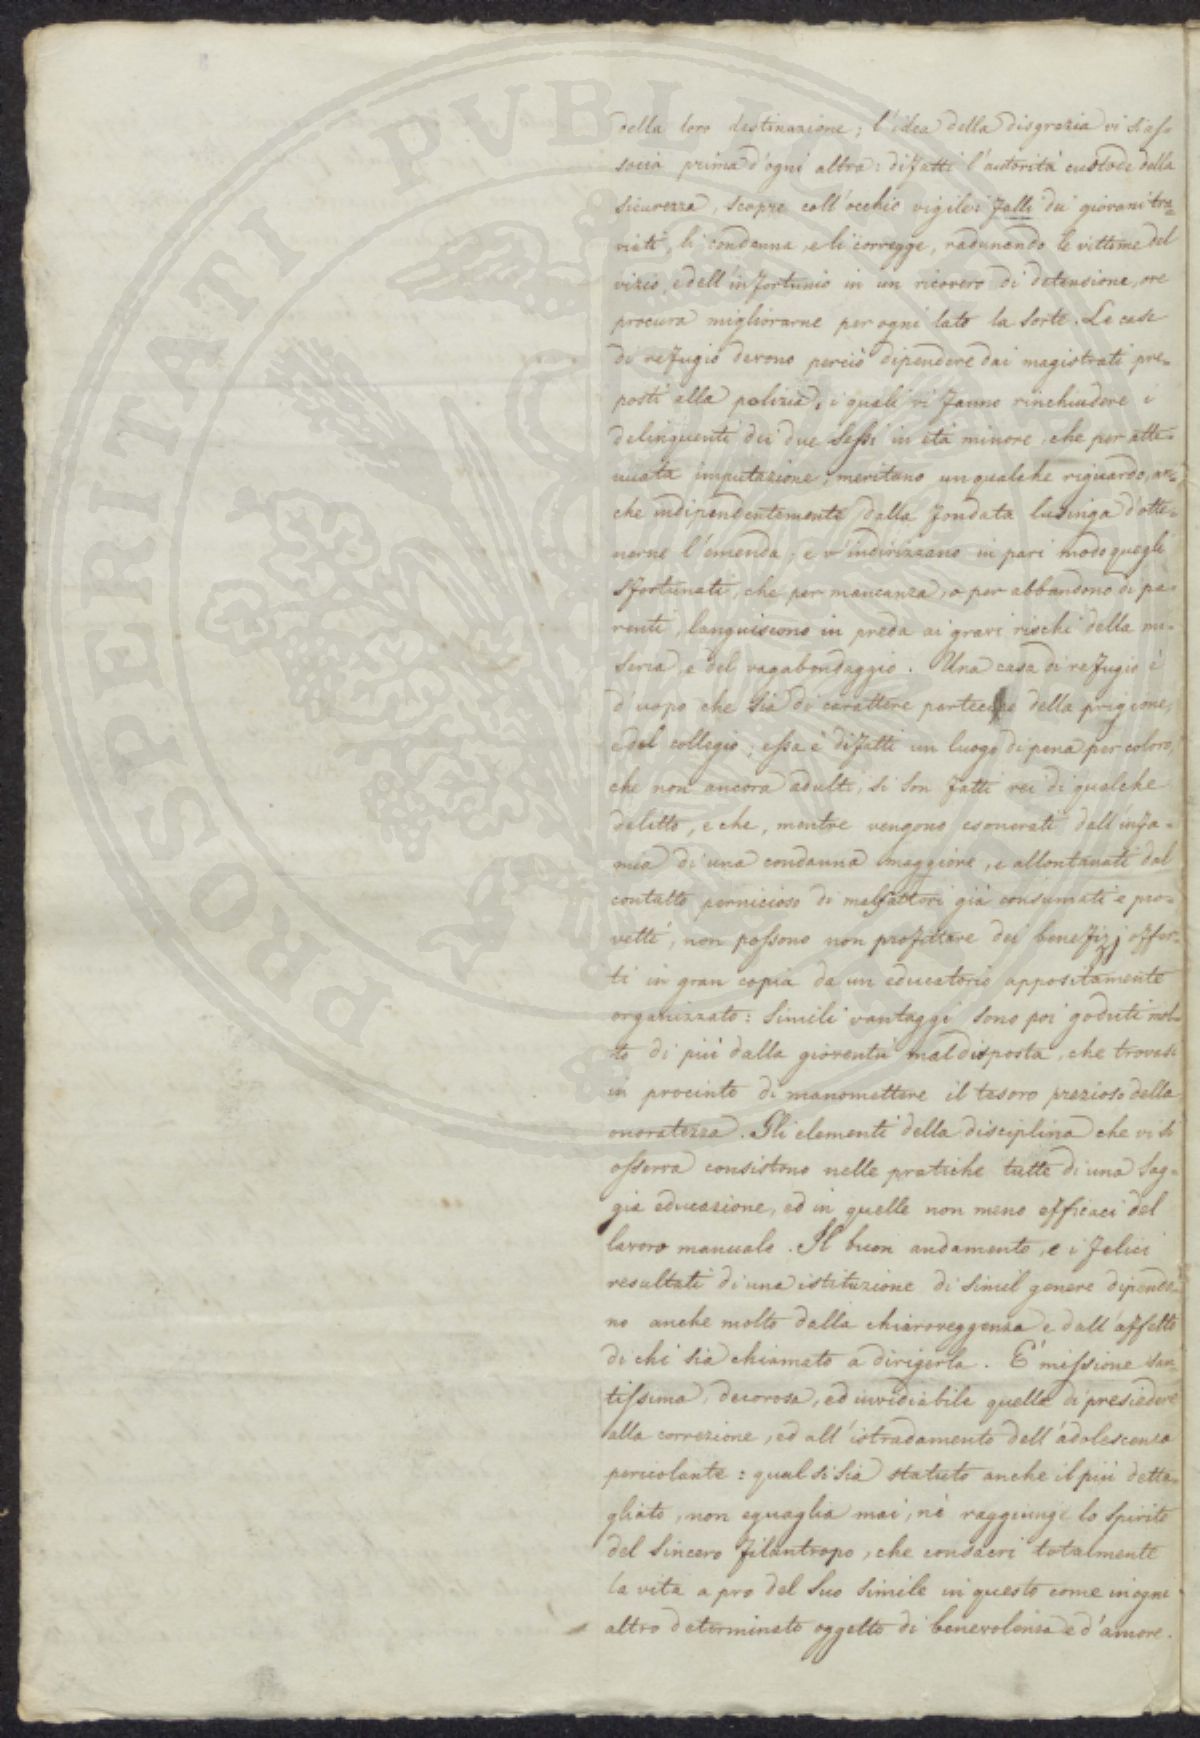 della loro destinazione; l'idea della disgrazia vi si as-
socia prima d'ogni altra: difatti l'autorità custode della
sicurezza, scopre coll'occhio vigile i falli dei giovani tra-
viati, li condanna, e li corregge, radunando le vittime del
vizio, e dell'infortunio in un ricovero di detensione, ove
procura migliorarne per ogni lato la sorte. Le case
di refugio devono perciò dipendere dai magistrati pre-
posti alla polizia, i quali vi fanno rinchiudere i
delinquenti dei due sessi in età minore, che per atte-
nuata imputazione, meritano un qualche riguardo, an-
che indipendentemente dalla fondata lusinga d'otte-
nerne l'emenda; e v'indirizzano in pari modo quegli
sfortunati, che per mancanza, o per abbandono di pa-
renti, languiscono in preda ai gravi rischi della mi-
seria, e del vagabondaggio. Una casa di refugio è
d'uopo che sia di carattere partecipe della prigione,
e del collegio; essa è difatti un luogo di pena per coloro,
che non ancora adulti, si son fatti rei di qualche
delitto, e che, mentre vengono esonerati dall'infa-
mia di una condanna maggiore, e allontanati dal
contatto pernicioso di malfattori già consumati e pro-
vetti, non possono non profittare dei benefizj offer-
ti in gran copia da un educatorio appositamente
organizzato: simili vantaggi sono poi goduti mol-
to di più dalla gioventù mal disposta, che trovasi
in procinto di manomettere il tesoro prezioso della
onoratezza. Gli elementi della disciplina che vi si
osserva consistono nelle pratiche tutte di una sag-
gia educazione, ed in quelle non meno efficaci del
lavoro manuale. Il buon andamento, e i felici
resultati di una istituzione di simil genere dipendo-
no anche molto dalla chiaroveggenza e dall'affetto
di chi sia chiamato a dirigerla. È missione san-
tissima, decorosa, ed invidiabile quella di presiedere
alla correzione, ed all'istradamento dell'adolescenza
pericolante: qual si sia statuto anche il più detta-
gliato, non eguaglia mai, nè raggiunge lo spirito
del sincero filantropo, che consacri totalmente
la vita a pro del suo simile in questo come in ogni
altro determinato oggetto di benevolenza e d'amore.
PROSPERITATI PVBLICAE